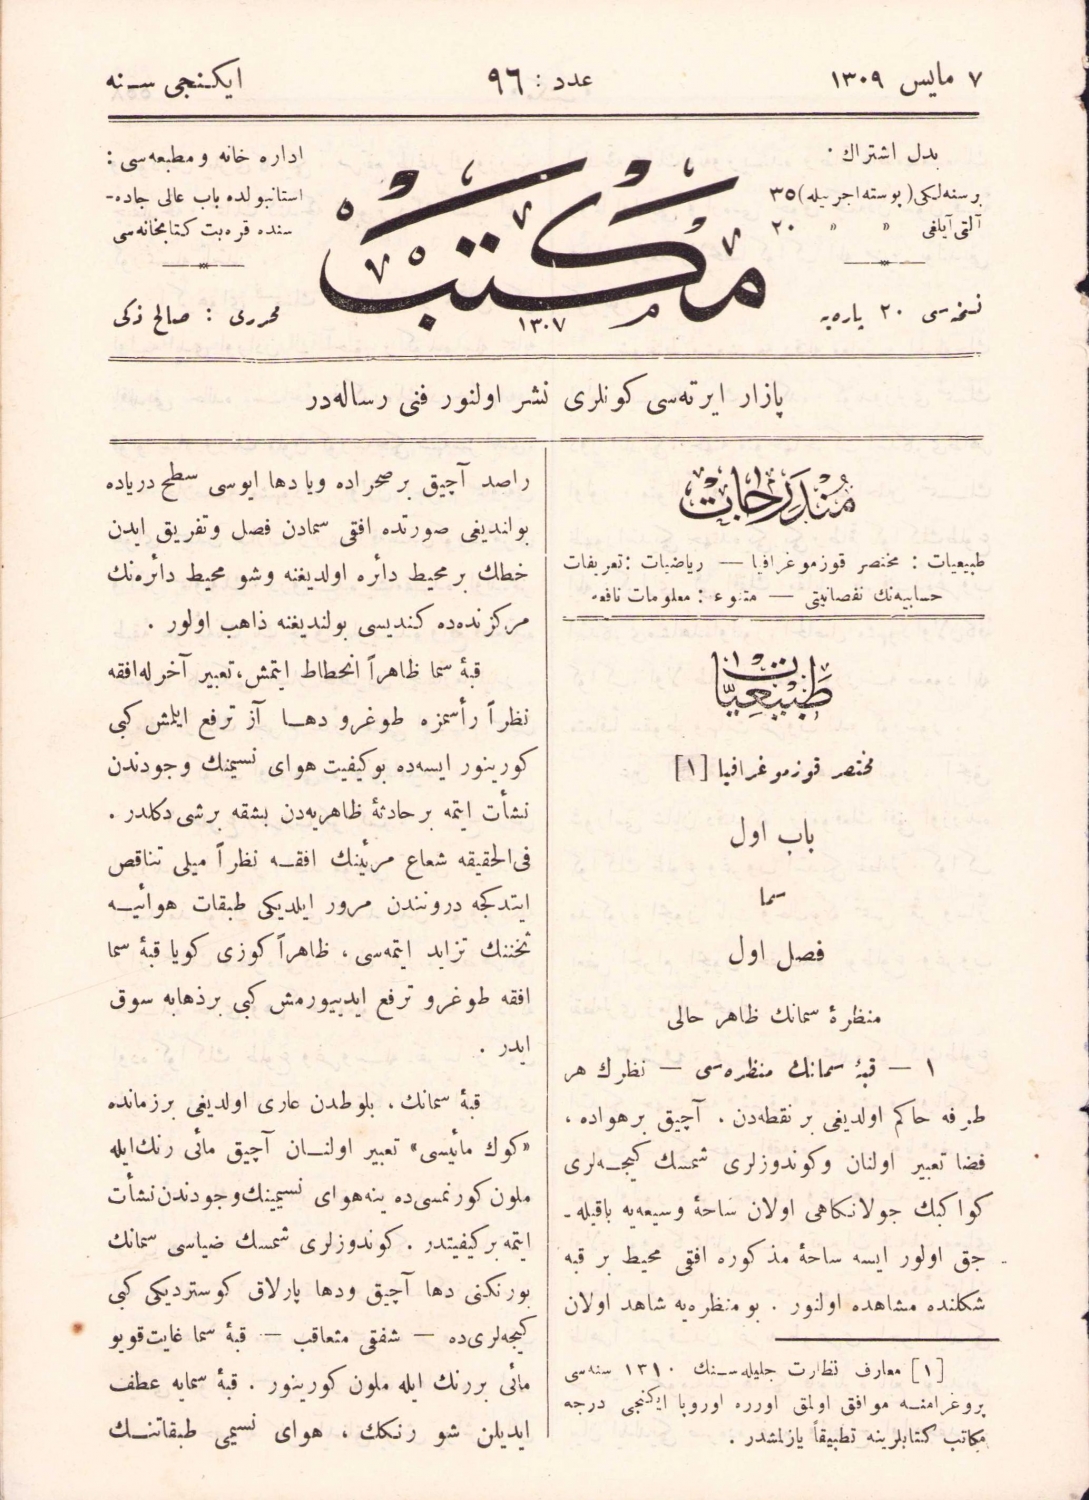 ٧ مایس ١٣٠٩
عدد : ٩٦
ایکنجی سنه
بدل اشتراك
برسنه‌لکی (پوسته اجرتیله) ٣٥
آلتی آیلغی » » ٢٠
نسخه‌سی ٢٠ پاره‌یه
مکتب
١٣٠٧
اداره خانه و مطبعه‌سی :
استانبولده باب عالی جاده-
سنده قره‌بت کتابخانه‌سی
محرری : صالح ذکی
پازار ایرته‌سی کونلری نشر اولنور فنی رساله‌در
مندرجات
طبیعیات : مختصر قوزموغرافیا — ریاضیات : تعریفات
حسابیه‌نك نقصانیتی — متنوعه : معلومات نافعه
طبیعیات
مختصر قوزموغرافیا [١]
باب اول
سما
فصل اول
منظرۀ سمانك ظاهر حالی
١ — قبۀ سمانك منظره‌سی — نظرك هر
طرفه حاکم اولدیغی بر نقطه‌دن ، آچیق برهواده ،
فضا تعبیر اولنان وکوندوزلری شمسك کیجه‌لری
کواکبك جولانکاهی اولان ساحۀ وسیعه‌یه باقیله-
جق اولور ایسه ساحۀ مذکوره افقی محیط بر قبه
شکلنده مشاهده اولنور . بو منظره‌یه شاهد اولان
[١] معارف نظارت جلیله‌سنك ١٣١٠ سنه‌سی
پروغرامنه موافق اولمق اوزره اوروپا ایکنجی درجه
مکاتب کتابلرینه تطبیقاً یازلمشدر .
راصد آچیق بر صحراده ویا دها ایوسی سطح دریاده
بولندیغی صورتده افقی سمادن فصل وتفریق ایدن
خطك بر محیط دائره اولدیغنه وشو محیط دائره‌نك
مرکزنده‌ده کندیسی بولندیغنه ذاهب اولور .
قبۀ سما ظاهراً انحطاط ایتمش ، تعبیر آخرله افقه
نظراً رأسمزه طوغرو دها آز ترفع ایلمش کبی
کورینور ایسه‌ده بوکیفیت هوای نسیمینك وجودندن
نشأت ایتمه بر حادثۀ ظاهریه‌دن بشقه برشی دکلدر .
فی‌الحقیقه شعاع مرئینك افقه نظراً میلی تناقص
ایتدکجه دروننـدن مرور ایلدیکی طبقات هوائیه
ثخننك تزاید ایتمه‌سی ، ظاهراً کوزی کویا قبۀ سما
افقه طوغرو ترفع ایدییورمش کبی برذهابه سوق
ایدر .
قبۀ سمانك ، بلوطدن عاری اولدیغی برزمانده
«کوك مائیسی» تعبیر اولنان آچیق مائی رنك ایله
ملون کورنمسی‌ده ینه هوای نسیمینك وجودندن نشأت
ایتمه بر کیفیتدر . کوندوزلری شمسك ضیاسی سمانك
بورنکنی دها آچیق ودها پارلاق کوستردیکی کبی
کیجه‌لری‌ده — شفقی متعاقب — قبۀ سما غایت قویو
مائی بررنك ایله ملون کورینور . قبۀ سمایه عطف
ایدیلن شو رنکك ، هوای نسیمی طبقاتنك